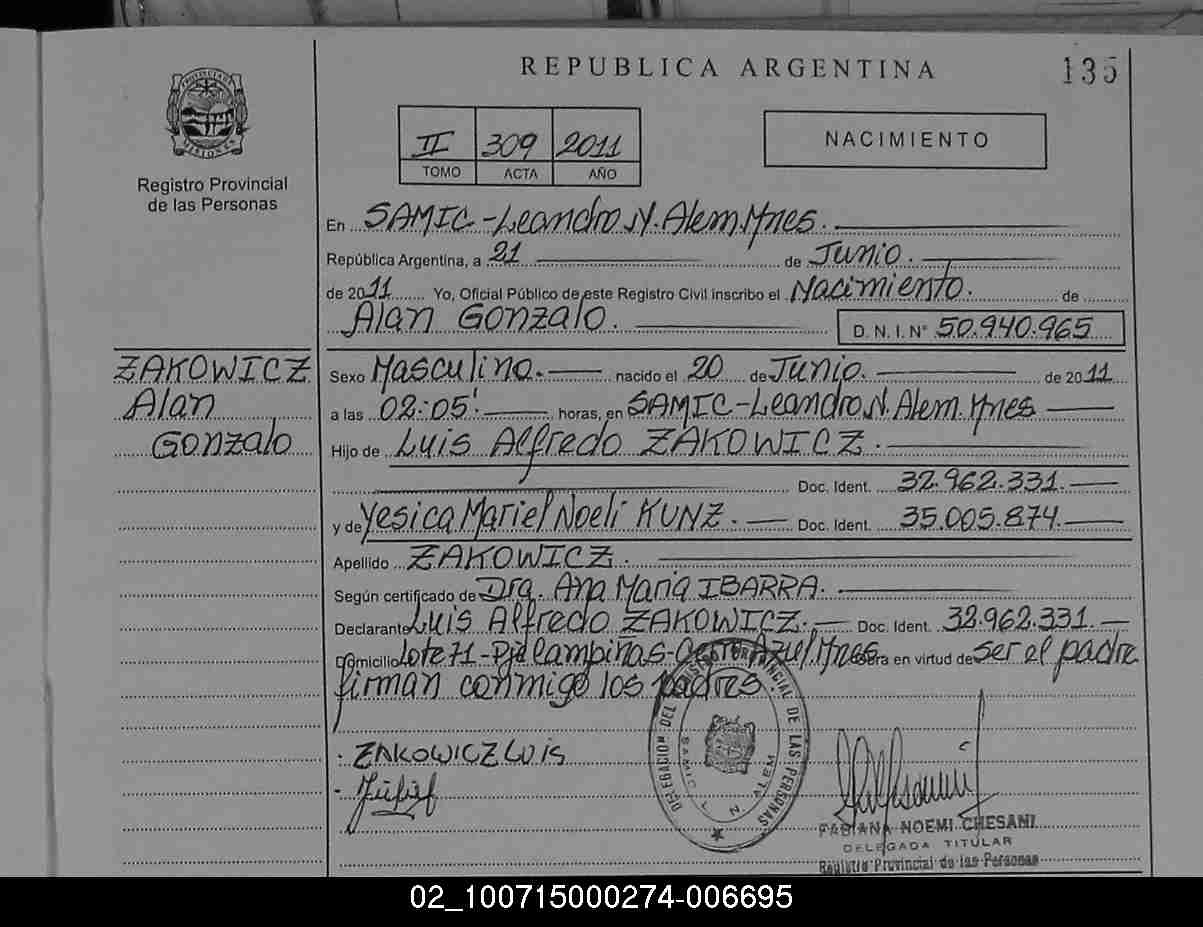 REPUBLICA ARGENTINA
135
PROVINCIA DE
MISIONES
Registro Provincial
de las Personas
II 309 2011
TOMO ACTA AÑO
NACIMIENTO
En SAMIC - Leandro N. Alem. Mnes.
República Argentina, a 21 de Junio.
de 2011 Yo, Oficial Público de este Registro Civil inscribo el Nacimiento. de
Alan Gonzalo. D. N. I. N° 50.940.965
ZAKOWICZ
Alan
Gonzalo
Sexo Masculino. nacido el 20 de Junio. de 2011
a las 02:05' horas, en SAMIC - Leandro N. Alem. Mnes
Hijo de Luis Alfredo ZAKOWICZ.
Doc. Ident. 32.962.331.
y de Yesica Mariel Noeli KUNZ. Doc. Ident. 35.005.874.
Apellido ZAKOWICZ.
Según certificado de Dra. Ana Maria IBARRA.
Declarante Luis Alfredo ZAKOWICZ. Doc. Ident. 32.962.331.
Domicilio Lote 71 - Pje Campiñas - Cerro Azul Mnes Obra en virtud de ser el padre
firman conmigo los padres.
ZAKOWICZ LUIS
DELEGACION DEL REGISTRO PROVINCIAL DE LAS PERSONAS
SAMIC L. N. ALEM
FABIANA NOEMI CHESANI
DELEGADA TITULAR
Registro Provincial de las Personas
02_100715000274-006695